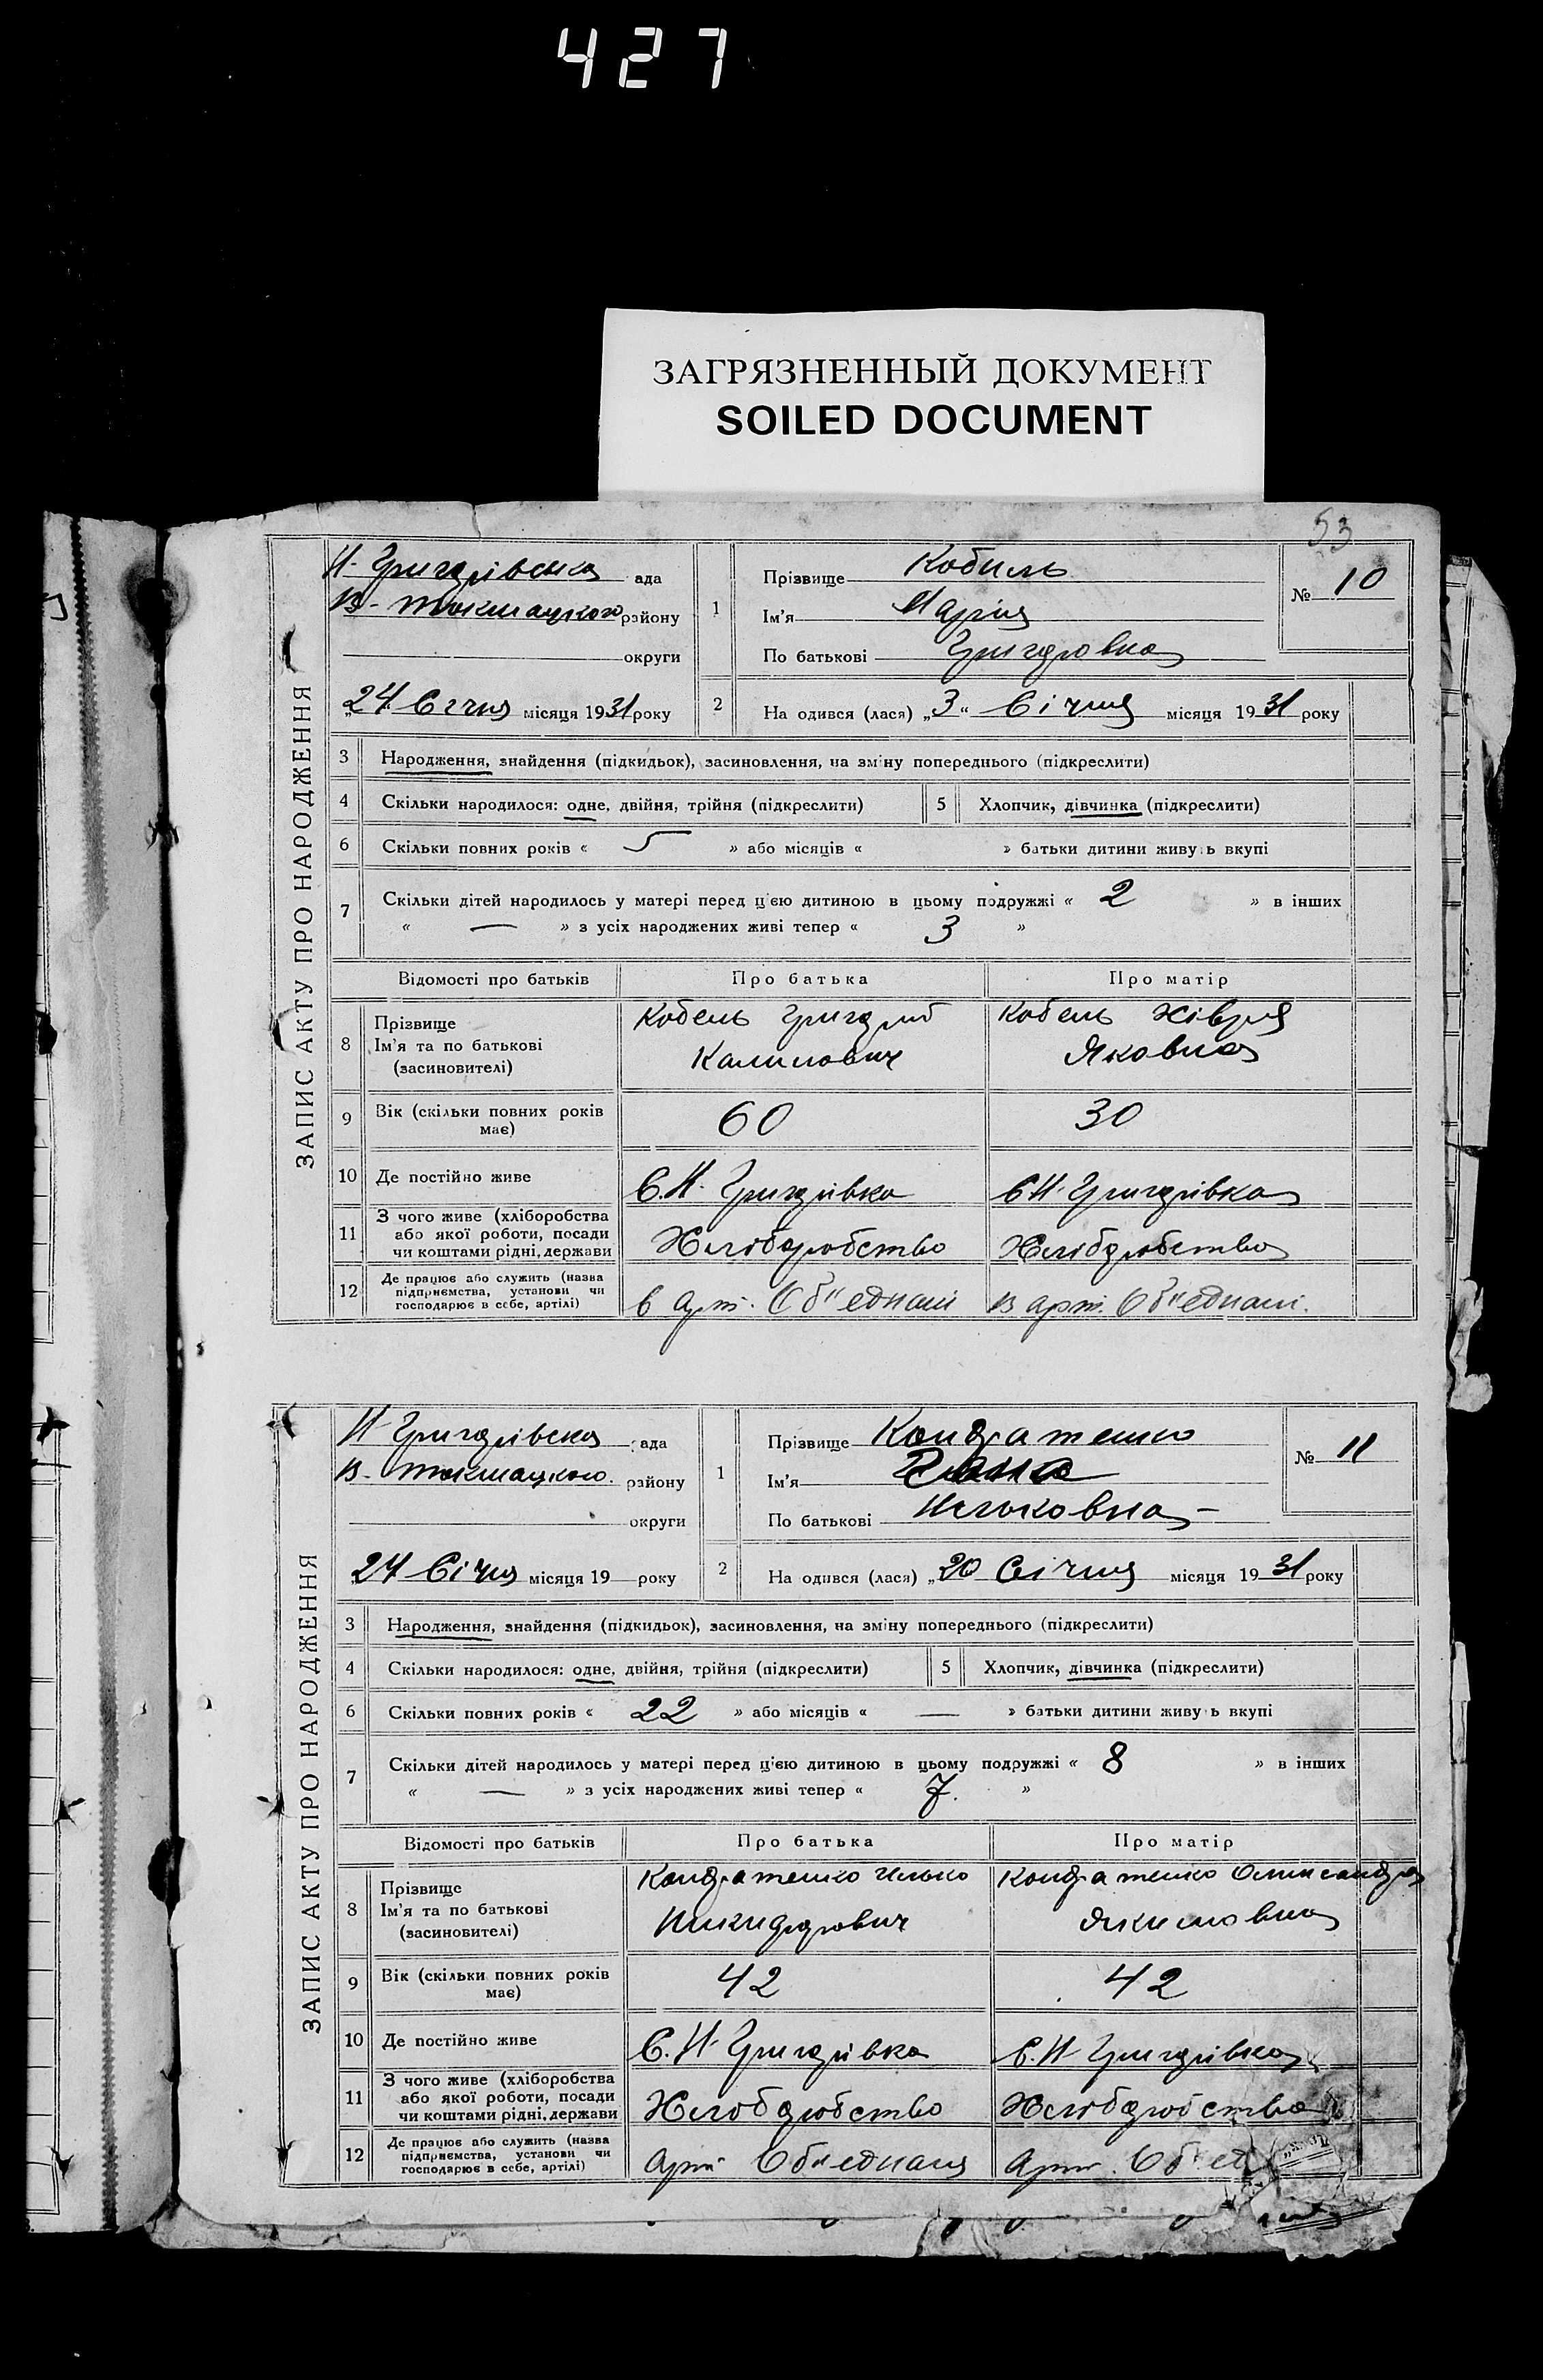 427
ЗАГРЯЗНЕННЫЙ ДОКУМЕНТ
SOILED DOCUMENT
53
ЗАПИС АКТУ ПРО НАРОДЖЕННЯ
Н-Григорівська ада
В-Токмацкого району
округи
24 Січня місяця 1931 року
1
Прізвище Кобиль
Ім'я Марія
По батькові Григоровна
№ 10
2
На одився (лася) „3“ Січня місяця 1931 року
3 Народження, знайдення (підкидьок), засиновлення, на зміну попереднього (підкреслити)
4 Скільки народилося: одне, двійня, трійня (підкреслити) 5 Хлопчик, дівчинка (підкреслити)
6 Скільки повних років « 5 » або місяців « » батьки дитини живуть вкупі
7 Скільки дітей народилось у матері перед цією дитиною в цьому подружжі « 2 » в інших
« — » з усіх народжених живі тепер « 3 »
Відомості про батьків Про батька Про матір
8 Прізвище
Ім'я та по батькові
(засиновителі)
Кобель Григорій
Калинович
Кобель Хівря
Яковна
9 Вік (скільки повних років має) 60 30
10 Де постійно живе С.Н-Григорівка С Н-Григорівка
11 З чого живе (хліборобства
або якої роботи, посади
чи коштами рідні, держави
Хліборобство Хліборобство
12 Де працює або служить (назва
підприємства, установи чи
господарює в себе, артілі)
в арт. Об"єднані в арт. Об"єднані.
ЗАПИС АКТУ ПРО НАРОДЖЕННЯ
Н-Григорівська ада
В-Токмацкого району
округи
24 Січня місяця 19 року
1
Прізвище Кондратенко
Ім'я
По батькові Ильковна
№ 11
2
На одився (лася) „20 Січня місяця 1931 року
3 Народження, знайдення (підкидьок), засиновлення, на зміну попереднього (підкреслити)
4 Скільки народилося: одне, двійня, трійня (підкреслити) 5 Хлопчик, дівчинка (підкреслити)
6 Скільки повних років « 22 » або місяців « — » батьки дитини живуть вкупі
7 Скільки дітей народилось у матері перед цією дитиною в цьому подружжі « 8 » в інших
« — » з усіх народжених живі тепер « 7. »
Відомості про батьків Про батька Про матір
8 Прізвище
Ім'я та по батькові
(засиновителі)
Кондратенко Илько
Никифорович
Кондратенко Олександра
Якимовна
9 Вік (скільки повних років має) 42 42
10 Де постійно живе С.Н-Григорівка С.Н Григорівка
11 З чого живе (хліборобства
або якої роботи, посади
чи коштами рідні, держави
Хлоборобство Хліборобство
12 Де працює або служить (назва
підприємства, установи чи
господарює в себе, артілі)
Арт Об"єднаня Арт. Об'єд